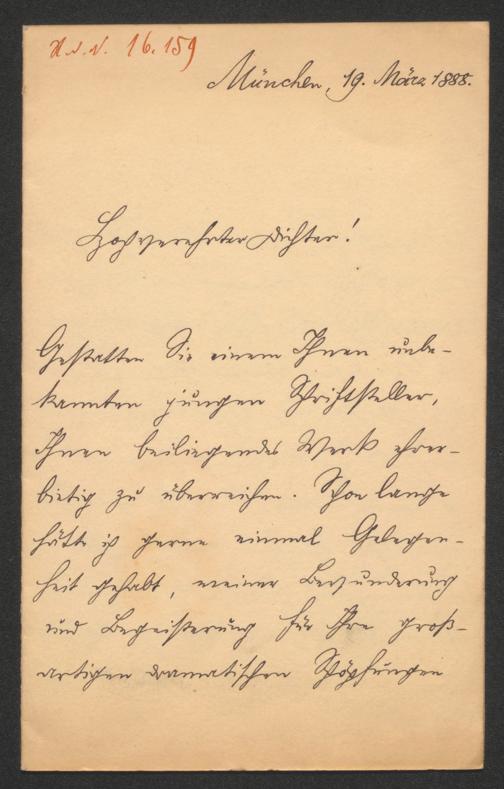 H. I. N. 16.159
München, 19. März 1888.
Hochverehrter Dichter!
Gestatten Sie einem Ihnen unbe-
kannten jungen Schriftsteller,
Ihnen beiliegendes Werk ehrer-
bietig zu überreichen. Schon lange
hätte ich gerne einmal Gelegen-
heit gehabt, meiner Bewunderung
und Begeisterung für Ihre groß-
artigen dramatischen Schöpfungen